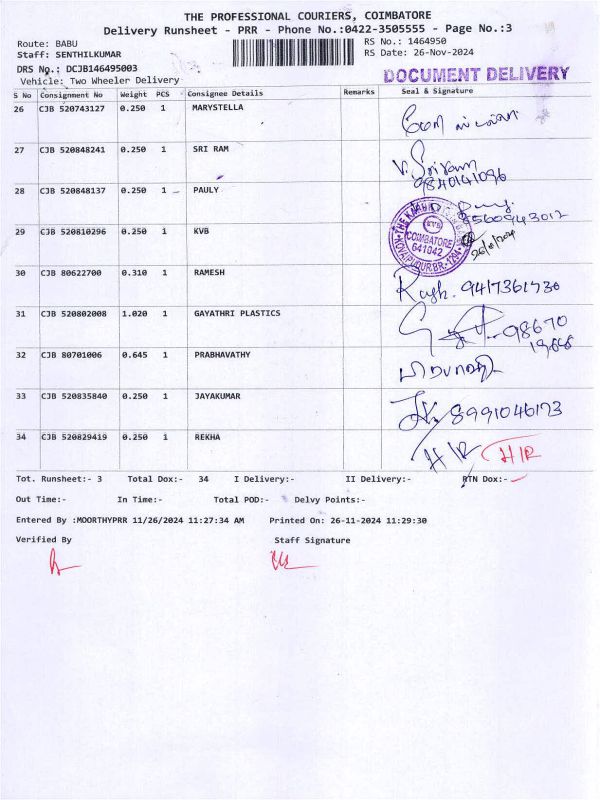 THE PROFESSIONAL COURIERS, COIMBATORE
Delivery Runsheet - PRR - Phone No.:0422-3505555 - Page No.:3
Route: BABU
RS No.: 1464950
Staff: SENTHILKUMAR
RS Date: 26-Nov-2024
DRS No.: DCJB146495003
Vehicle: Two Wheeler Delivery
DOCUMENT DELIVERY
S No Consignment No Weight PCS Consignee Details Remarks Seal & Signature
26 CJB 520743127 0.250 1 MARYSTELLA
27 CJB 520848241 0.250 1 SRI RAM
V. Sriram
9840141096
28 CJB 520848137 0.250 1 PAULY
8560943012
29 CJB 520810296 0.250 1 KVB
COIMBATORE
641042
30 CJB 80622700 0.310 1 RAMESH
9417361730
31 CJB 520802008 1.020 1 GAYATHRI PLASTICS
98670
32 CJB 80701006 0.645 1 PRABHAVATHY
33 CJB 520835840 0.250 1 JAYAKUMAR
8991046173
34 CJB 520829419 0.250 1 REKHA
H/R H/R
Tot. Runsheet:- 3 Total Dox:- 34 I Delivery:- II Delivery:- RTN Dox:-
Out Time:- In Time:- Total POD:- Delvy Points:-
Entered By :MOORTHYPRR 11/26/2024 11:27:34 AM Printed On: 26-11-2024 11:29:30
Verified By Staff Signature